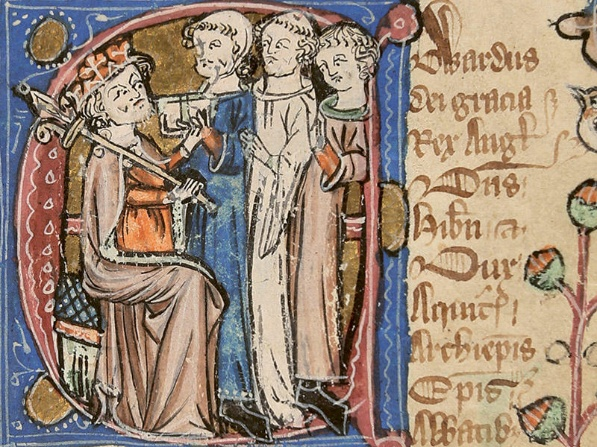 dwardus
dei gracia
Rex Angl
Dns
Hibn ca
Dux
Aquit
Archiepis
Epis
Abbatib